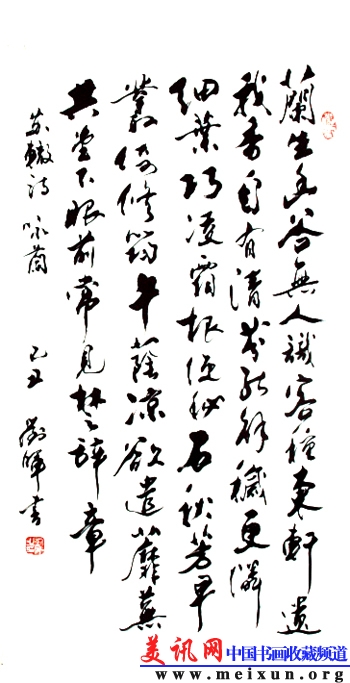 蘭生幽谷無人識客種東軒遺
我香自有清芬能解穢更憐
细葉巧凌霜根便密石秋芳早
叢倚修筠午蔭凉欲遣蘼蕪
共堂下眼前常見楚辞章
苏辙诗 咏茼
己丑 書
美讯网 中国书画收藏频道
www.meixun.org